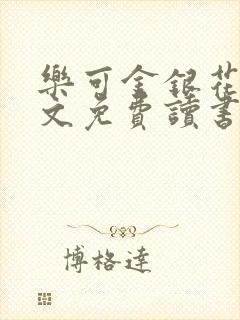 樂可金銀花
文免費讀書
博格達